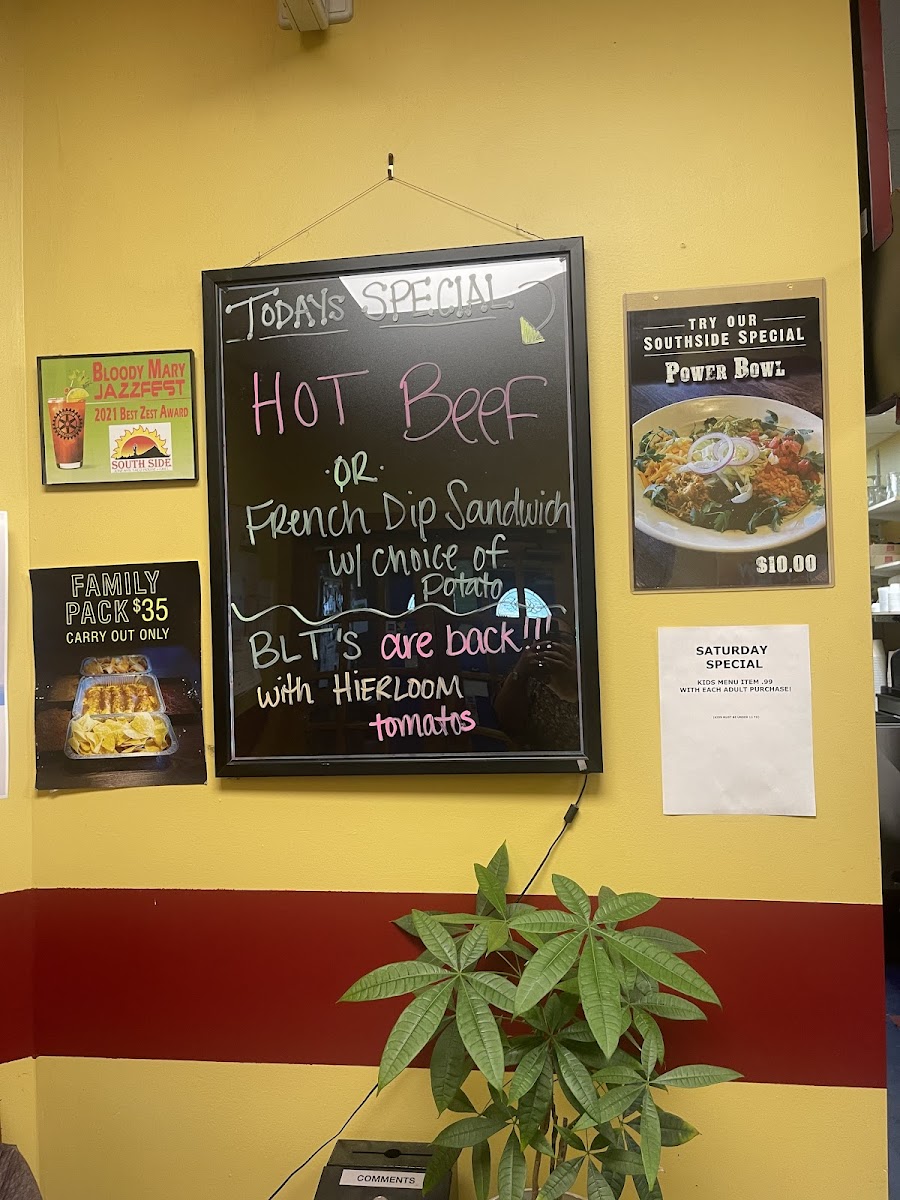 TODAYS SPECIAL
HOT BEEF
OR
FRENCH DIP SANDWICH
W/ CHOICE OF
POTATO
BLT'S are back!!!
with HIERLOOM
tomatos
BLOODY MARY
JAZZFEST
2021 BEST ZEST AWARD
SOUTH SIDE
FAMILY
PACK $35
CARRY OUT ONLY
TRY OUR
SOUTHSIDE SPECIAL
POWER BOWL
$10.00
SATURDAY
SPECIAL
KIDS MENU ITEM .99
WITH EACH ADULT PURCHASE!
COMMENTS